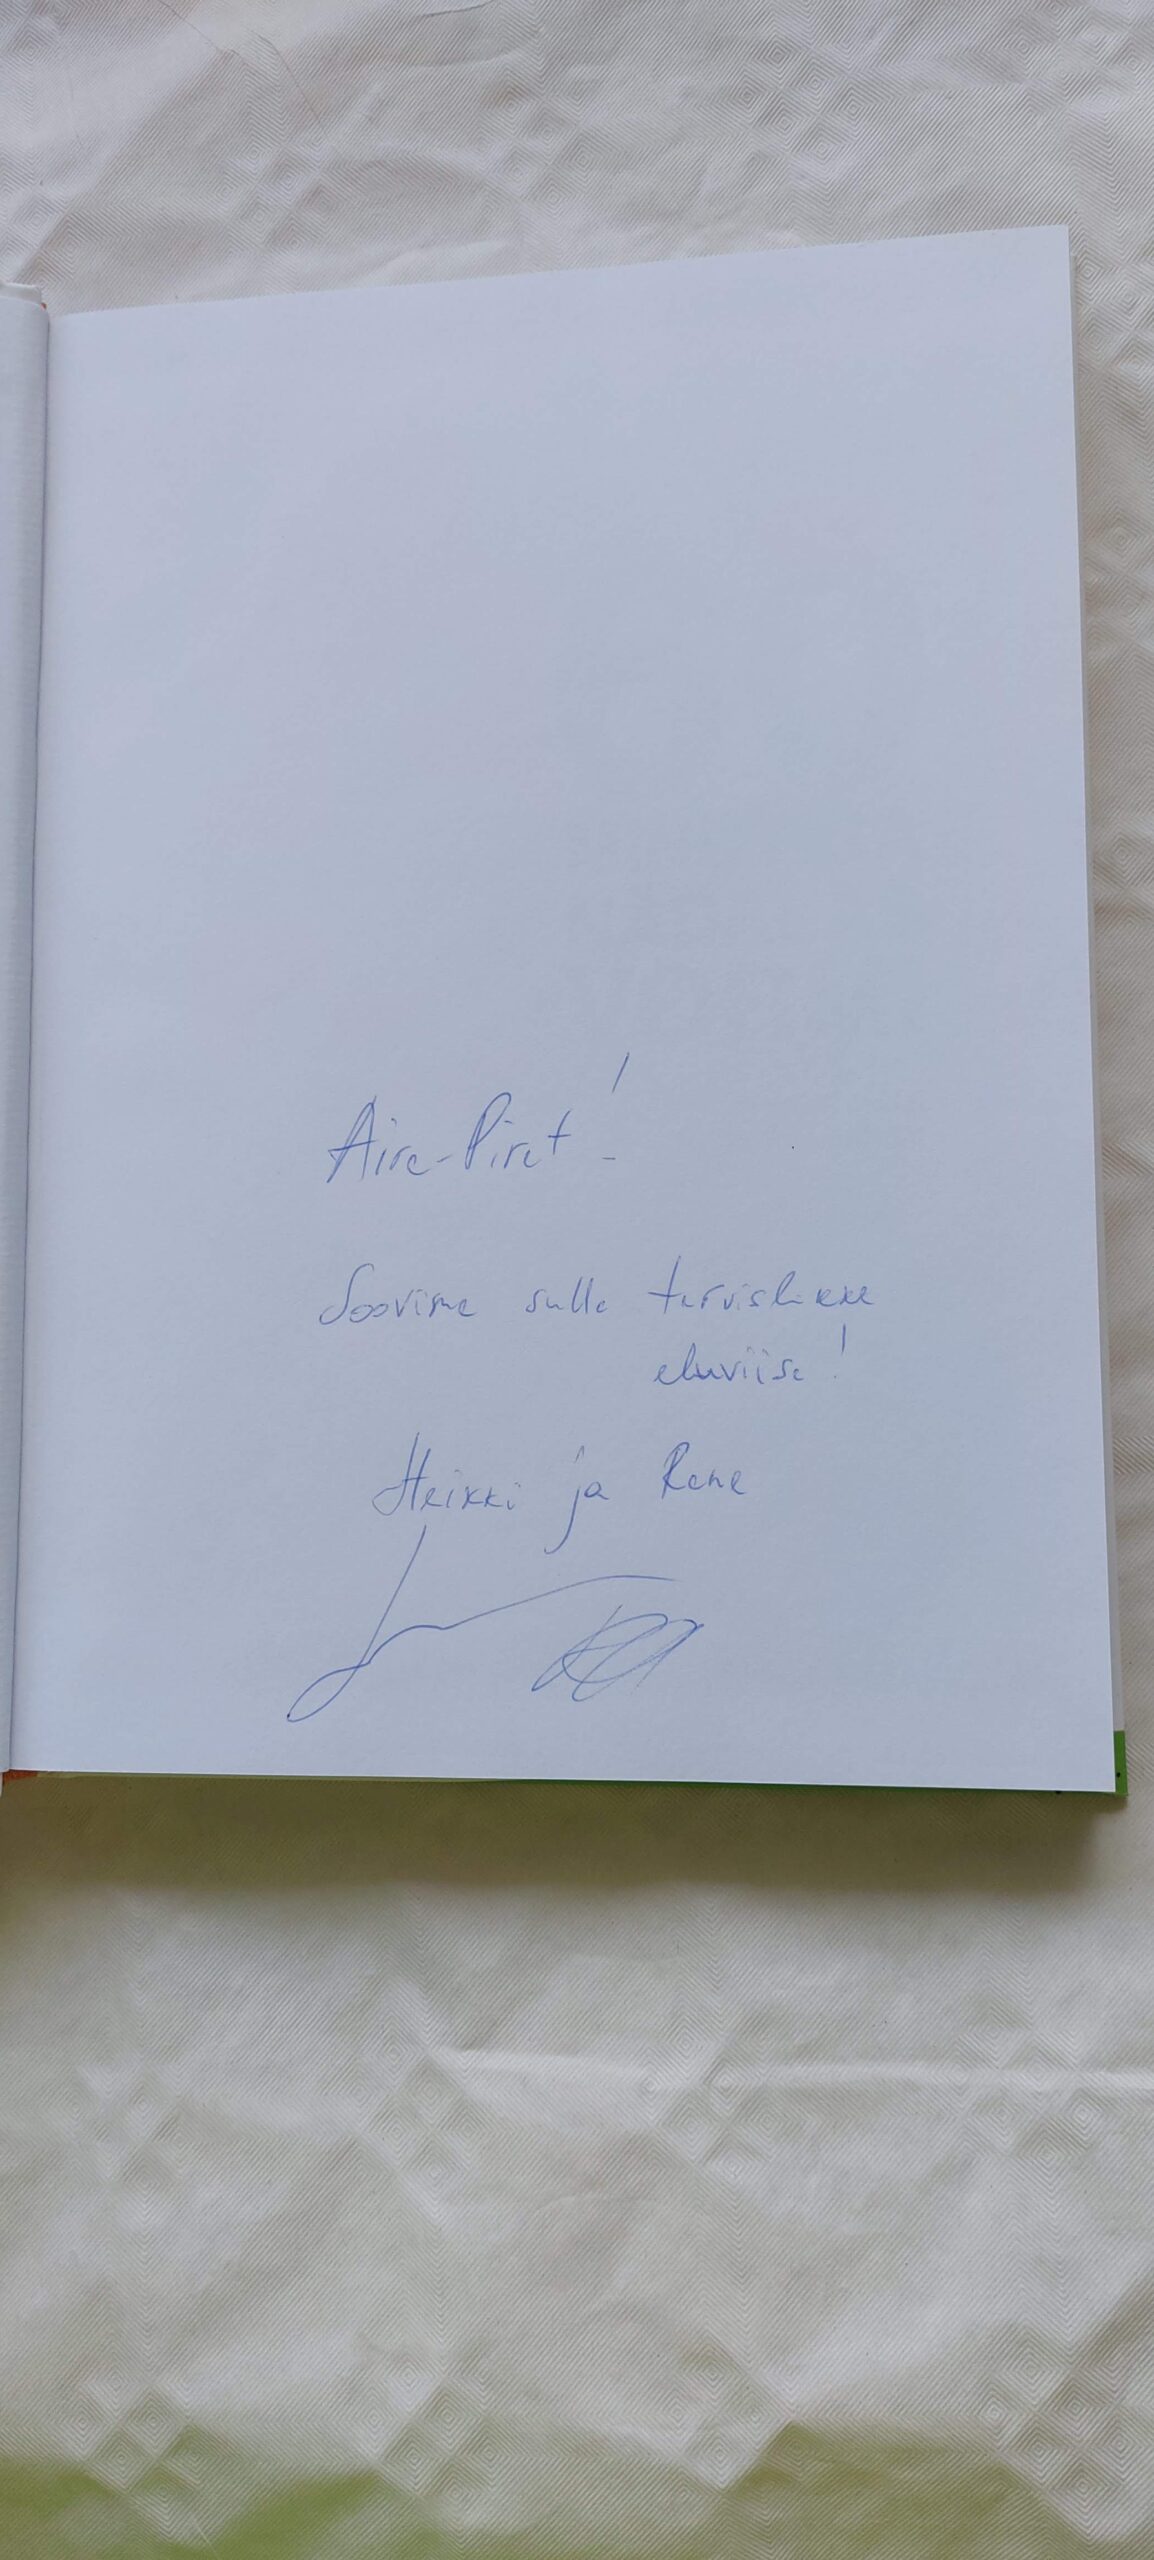 Aire-Piret!
Soovime sulle tervislikke
eluviise!
Heikki ja Rene